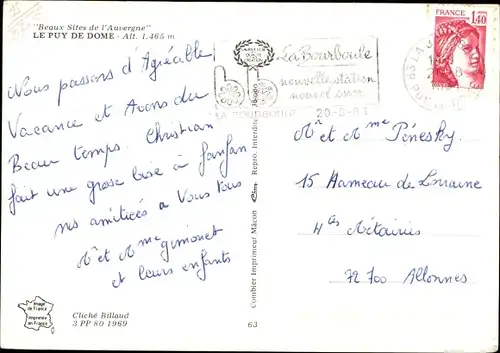 "Beaux Sites de l'Auvergne"
LE PUY DE DOME - Alt. 1.465 m
Nous passons d'Agréable
Vacance et Avons du
Beau temps. Christian
fait une grosse bise à fanfan
nos amitiées a Vous tous
Mr et Mme Gimonet
et leurs enfants
Image de France
Imprimée en France
Cliché Billaud
3 PP 80 1969
Combier Imprimeur Mâcon
Repro. Interdite
63
La Bourboule
nouvelle station
LA BOURBOULE
20-5-81
FRANCE
1,40
Mr et Mme Pénesky.
15 Hameau de Lorraine
4 as Métairies
72700 Allonnes